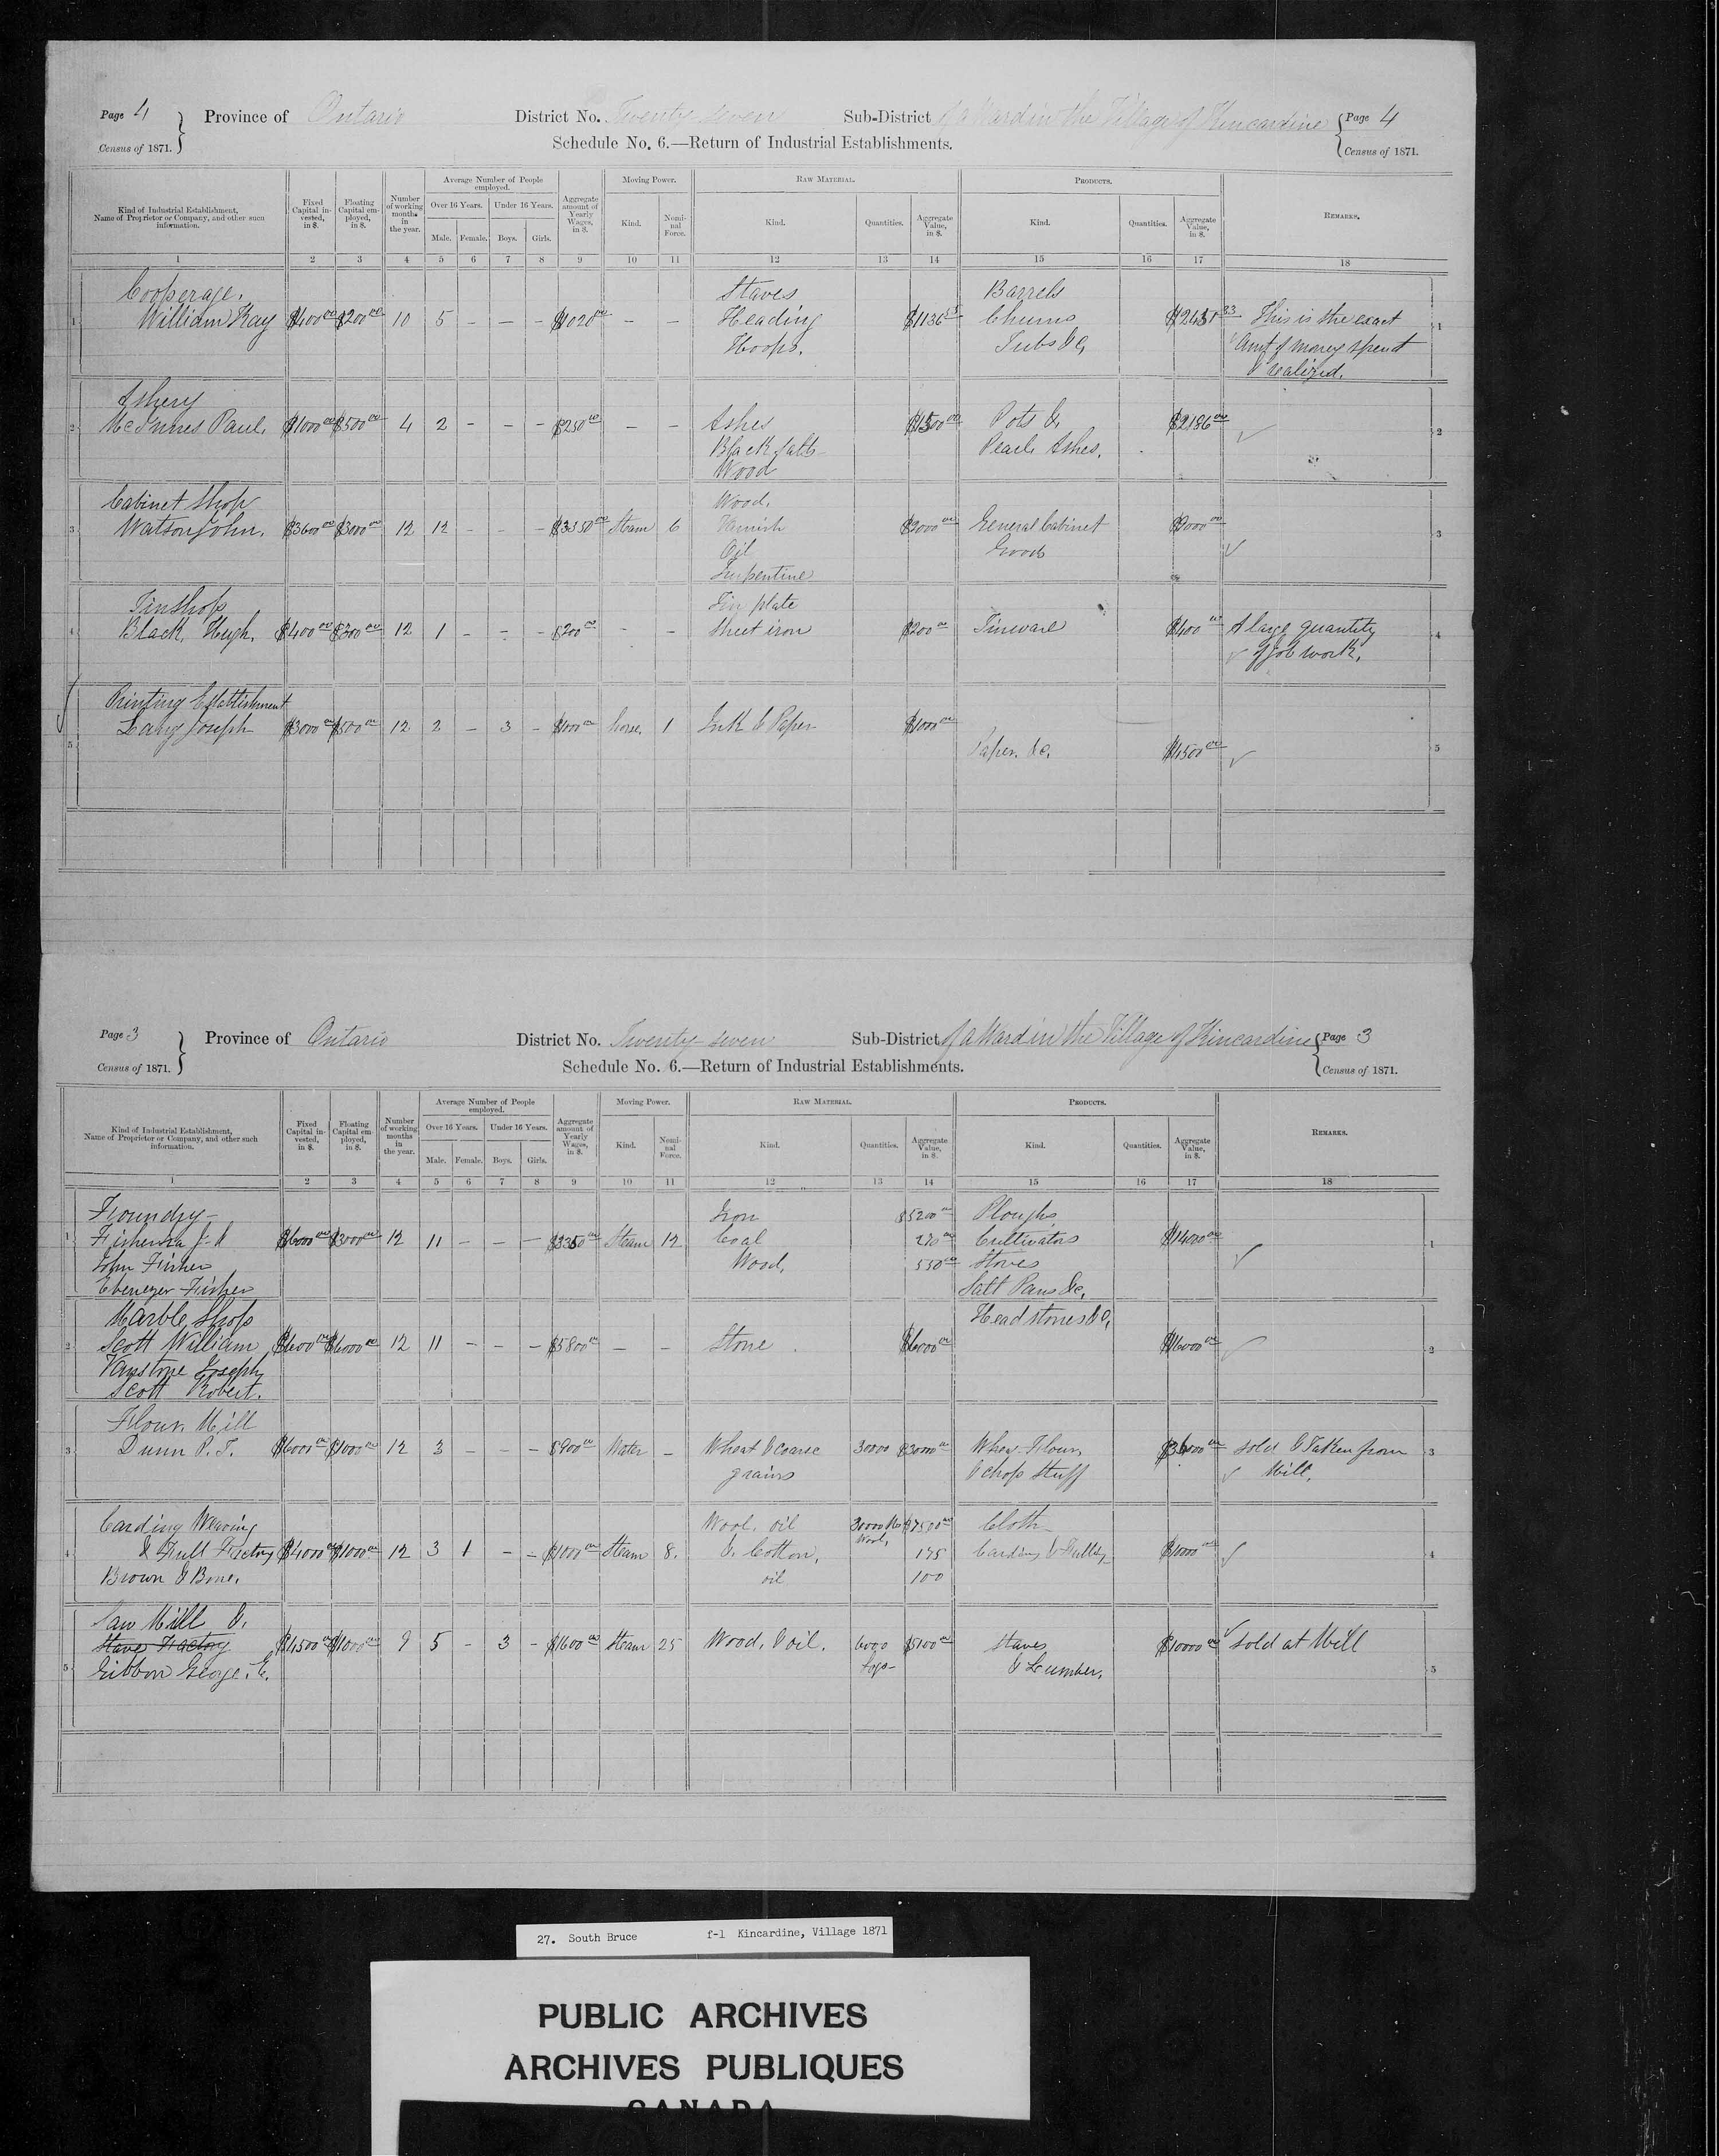 Page 4
Census of 1871.
Province of Ontario
District No. Twenty seven
Sub-District f a Ward in the Village of Kincardine
Page 4
Census of 1871.
Schedule No. 6.—Return of Industrial Establishments.
Kind of Industrial Establishment, Name of Proprietor or Company, and other such information.
Fixed Capital invested, in $.
Floating Capital employed, in $.
Number of working months in the year.
Average Number of People employed.
Over 16 Years. Under 16 Years.
Male. Female. Boys. Girls.
Aggregate amount of Yearly Wages, in $.
Moving Power.
Kind. Nominal Force.
Raw Material.
Kind. Quantities. Aggregate Value, in $.
Products.
Kind. Quantities. Aggregate Value, in $.
Remarks.
1 2 3 4 5 6 7 8 9 10 11 12 13 14 15 16 17 18
Cooperage. Staves Barrels
1 William Kay $400 00 $200 00 10 5 – – – $1020 00 – – Heading $1136 Churns This is the exact 1
Hoops. Tubs &c, Amt of money spent
& realized.
Ashery
2 McInnes Paul. $1000 00 $500 00 4 2 – – – $250 00 – – Ashes $1500 00 Pots & $2186 00 2
Black Salts Pearl Ashes.
Wood
Cabinet Shop Wood.
3 Watson John. $3600 00 $3000 00 12 12 – – – $3350 00 Steam 6 Varnish $2000 00 General Cabinet $9000 00 3
Oil Goods
Turpentine
Tinshop Tin plate
4 Black, Hugh. $400 00 $300 00 12 1 – – – $200 00 – – Sheet iron $200 00 Tinware $400 00 A large quantity 4
of job work.
Printing Establishment
5 Lang Joseph $3000 00 $500 00 12 2 – 3 – horse. 1 Ink & Paper $1000 00
Paper. &c. $4500 00 5
Page 3
Census of 1871.
Province of Ontario
District No. Twenty seven
Sub-District f a Ward in the Village of Kincardine
Page 3
Census of 1871.
Schedule No. 6.—Return of Industrial Establishments.
Kind of Industrial Establishment, Name of Proprietor or Company, and other such information.
Fixed Capital invested, in $.
Floating Capital employed, in $.
Number of working months in the year.
Average Number of People employed.
Over 16 Years. Under 16 Years.
Male. Female. Boys. Girls.
Aggregate amount of Yearly Wages, in $.
Moving Power.
Kind. Nominal Force.
Raw Material.
Kind. Quantities. Aggregate Value, in $.
Products.
Kind. Quantities. Aggregate Value, in $.
Remarks.
1 2 3 4 5 6 7 8 9 10 11 12 13 14 15 16 17 18
Foundry – Iron $5200 00 Ploughs
1 $6000 00 $3000 00 12 11 – – – $3350 00 Steam 12 Coal Cultivators $14000 00 1
John Fisher Wood, 550 00 Stoves
Ebenezer Fisher Salt Pans &c,
Marble Shop Head stones &c,
2 Scott William $600 00 $6000 00 12 11 – – – $5800 00 – – Stone $6000 00 $16000 00 2
Vanstone Joseph
Scott Robert.
Flour Mill
3 Dunn P. T. $6000 00 $1000 00 12 3 – – – $900 00 Water – Wheat & coarse 30000 $3000 00 Flour, sold & Taken from 3
grains & chop stuff Mill.
Carding Weaving Wool, oil 30000 lbs $7500 00 Cloth
4 & Full Factory $4000 00 $1000 00 12 3 1 – – $1000 00 Steam 8. & Cotton, Wool, 175 Carding & Fulling 4
Brown & oil 100
Saw Mill &.
Staves Factory $4500 00 $1000 00 9 5 – 3 – $1600 00 Steam 25 Wood, & oil. 6000 $5100 00 staves $10000 00 sold at Mill
5 Gibbon George. E. Logs – & Lumber, 5
27. South Bruce f-1 Kincardine, Village 1871
PUBLIC ARCHIVES
ARCHIVES PUBLIQUES
CANADA